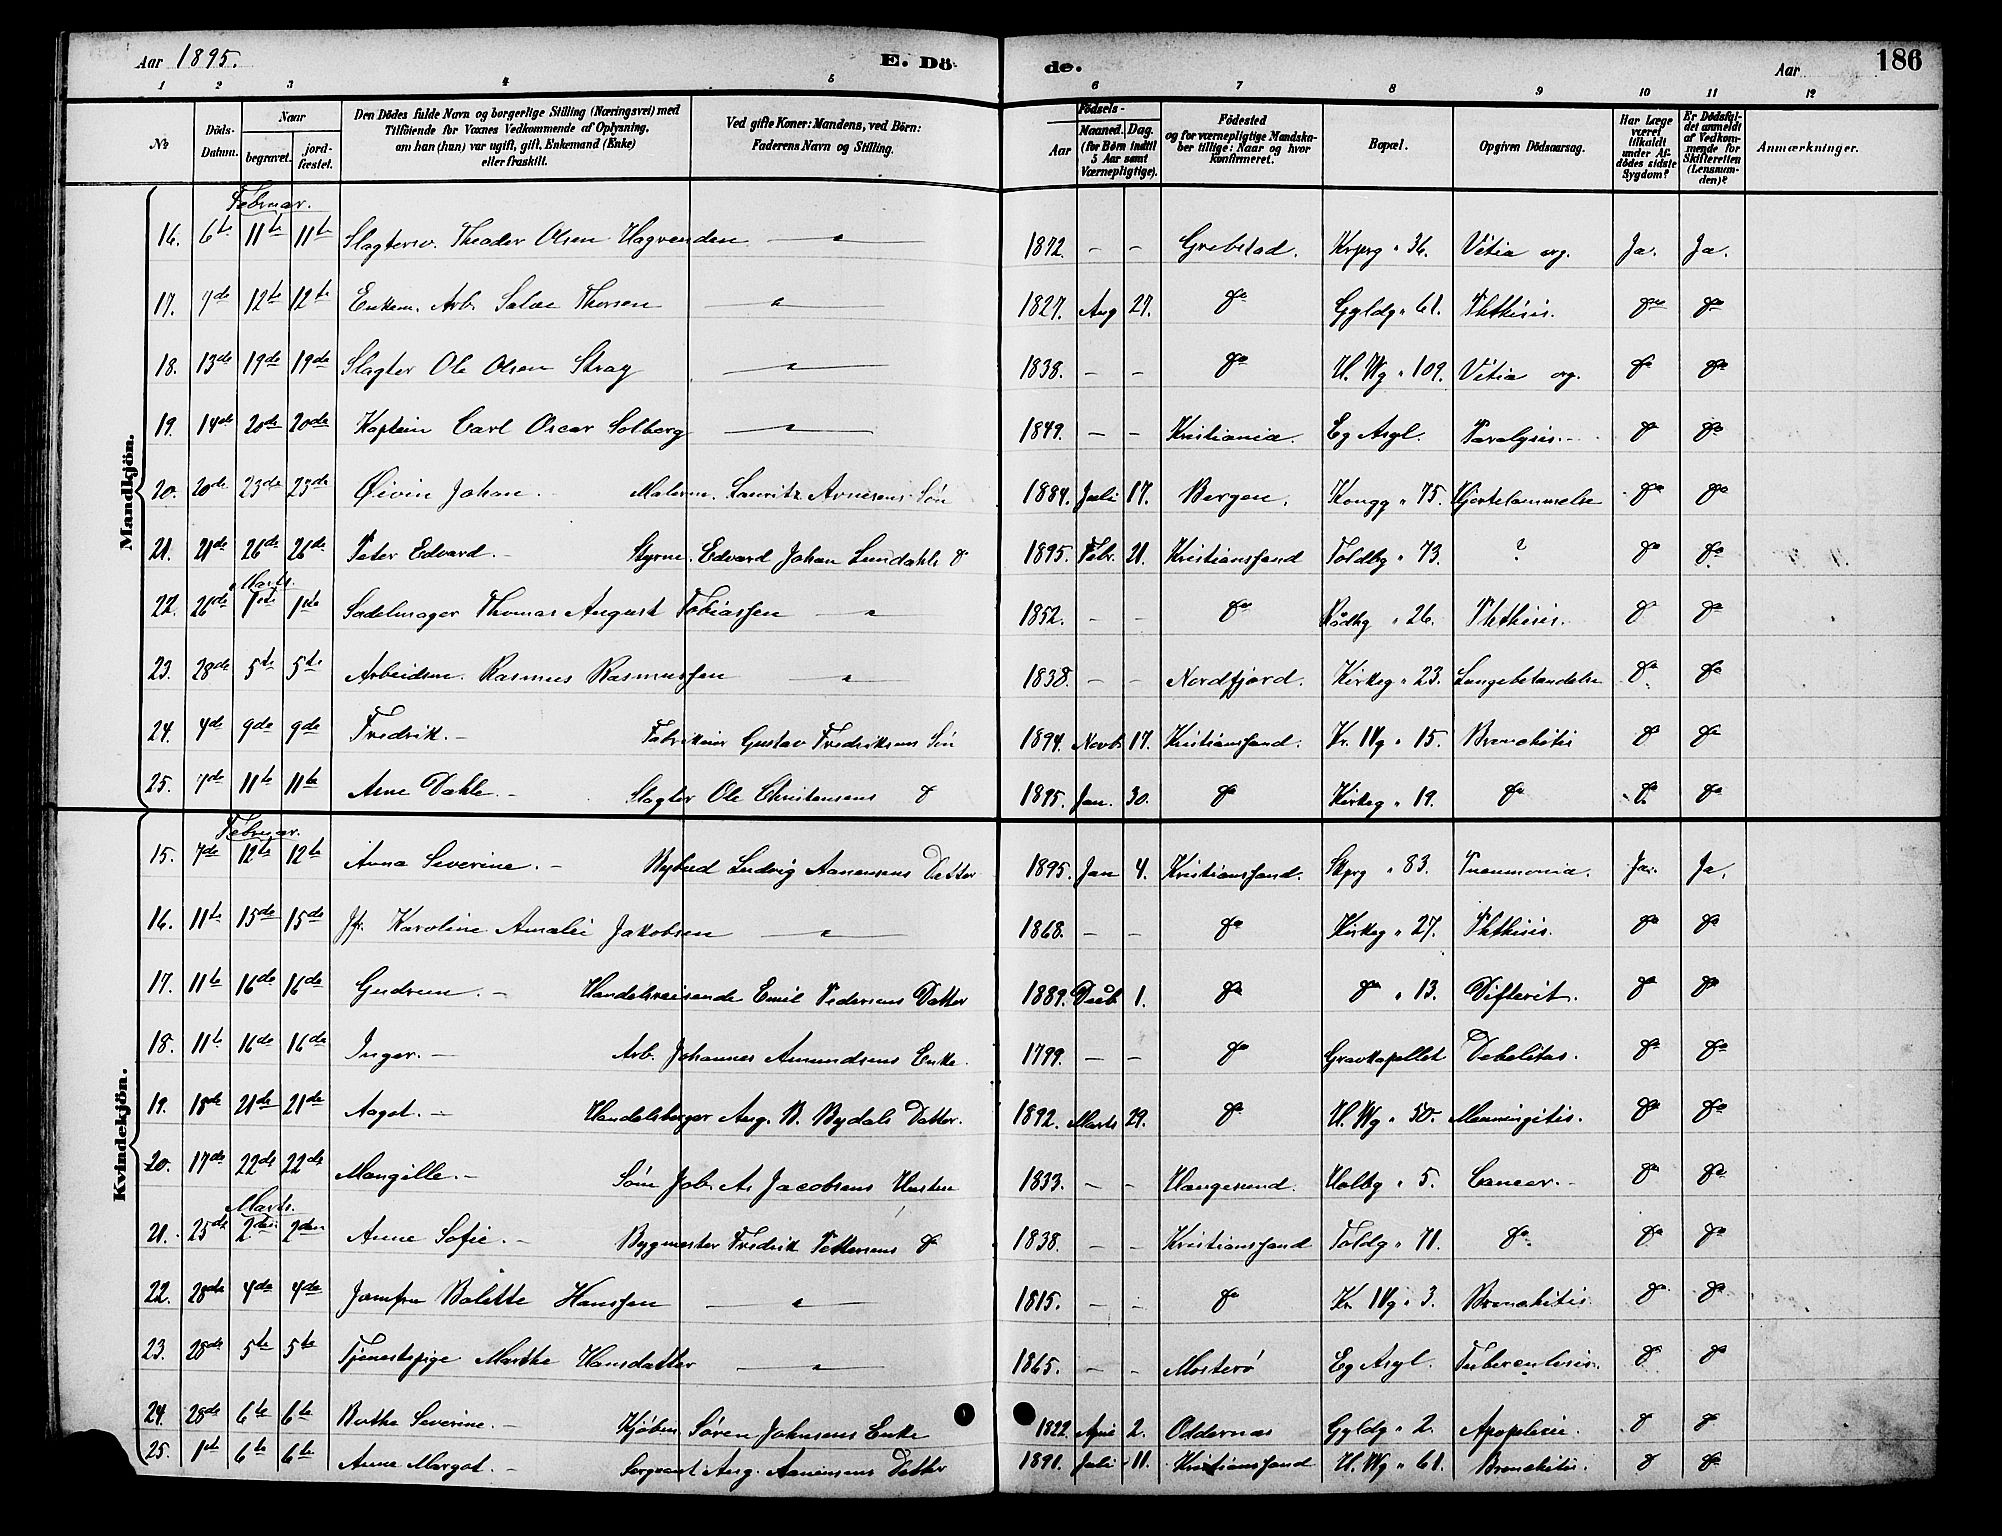 Aar 1895.
E. Dö-
de.
Aar
186
1 2 3 4 5 6 7 8 9 10 11 12
No
Döds-Datum.
Naar
begravet.
jord-fæstet.
Den Dödes fulde Navn og borgerlige Stilling (Næringsvei) med
Tilföiende for Voxnes Vedkommende af Oplysning,
om han (hun) var ugift, gift, Enkemand (Enke)
eller fraskilt.
Ved gifte Koner: Mandens, ved Börn:
Faderens Navn og Stilling.
Födsels-
Aar
Maaned.
Dag.
(for Börn indtil
5 Aar samt
Værnepligtige).
Födested
og for værnepligtige Mandska-
ber tillige: Naar og hvor
konfirmeret.
Bopæl.
Opgiven Dödsaarsag.
Har Læge
været
tilkaldt
under Af-
dödes sidste
Sygdom?
Er Dödsfal-
det anmeldt
af Vedkom-
mende for
Skifteretten
(Lensman-
den)?
Anmærkninger.
Mandkjön.
Februar.
16. 6te 11te 11te Slagtersv. Theodor Olsen Hagvenden — " — 1872. – – Grebstad. Krprg " 36. Vitia org. Ja. Ja.
17. 7de 12te 12te Enkem. Arb. Salve Thorsen — " — 1827. Aug 27. do Gyldg " 61. Phthisis. do do
18. 13de 19de 19de Slagter Ole Olsen Stray — " — 1838. – – do U. Wg " 109. Vitia org. do do
19. 14de 20de 20de Kaptein Carl Oscar Solberg — " — 1849. – – Kristiania. Eg Asyl. Paralysis. – do do
20. 20de 23de 23de Øivin Johan. – Malerm. Lauritz Arnesens Søn 1884. Juli 17. Bergen. Kongg " 75. Hjertelammelse do do
21. 21de 26de 26de Peter Edvard. – Styrm. Edvard Johan Lundahls do 1895. Febr. 21. Kristianssand Toldbg " 73. ? do do
Marts.
22. 26de 1ste 1ste Sadelmager Thomas August Tobiassen — " — 1852. – – do Rådhg " 26. Phthisis. do do
23. 28de 5te 5te Arbeidsm. Rasmus Rasmussen — " — 1838. – – Nordfjord. Kirkeg " 23. Lungebetændelse do do
24. 4de 9de 9de Fredrik. – Fabrikeier Gustav Fredriksens Søn 1894. Novb. 17. Kristianssand. Kr. IVg " 15. Bronchitis do do
25. 7de 11te 11te Arne Dahle. – Slagter Ole Christensens do 1895. Jan. 30. do Kirkeg " 19. do do do
Kvindekjön.
Februar.
15. 7de 12te 12te Anna Severine. – Bybud Ludvig Aanensens Datter 1895. Jan 4. Kristianssand. Skprg " 83. Pneumonia. Ja. Ja.
16. 11te 15de 15de Jfr. Karoline Amalie Jakobsen — " — 1868. – – do Kirkeg " 27. Phthisis. do do
17. 11te 16de 16de Gudrun. – Handelsreisende Emil Pedersens Datter 1889. Decb 1. do do " 13. Difterit. do do
18. 11te 16de 16de Inger. – Arb. Johannes Amundsens Enke. 1799. – – do Gravkapellet Debilitas. do do
19. 18de 21de 21de Aagot. – Handelsborger Aug. B. Bydals Datter. 1892. Marts 29. do U. Wg " 50. Menningitis. do do
20. 17de 22de 22de Mangille. – Søm. Job. A. Jacobsens Hustru 1833. – – Haugesund. Holbg " 5. Cancer. – do do
Marts.
21. 25de 2den 2den Anne Sofie. – Bygmester Fredrik Pettersens do 1838. – – Kristianssand Toldg " 71. do do do
22. 28de 4de 4de Jomfru Bolette Hanssen — " — 1815. – – do Kr. IVg " 3. Bronchitis do do
23. 28de 5te 5te Tjenestepige Marthe Hansdatter — " — 1865. – – Mosterö Eg Asyl. Tuberculosis. do do
24. 28de 6te 6te Berthe Severine. – Kjøbm Søren Johnsens Enke 1822. April 2. Oddernæs Gyldg " 2. Apoplexie. do do
25. 1ste 6te 6te Anne Margot. – Sergeant Aug. Aanensens Datter 1891. Juli 11. Kristianssand U. Wg " 61. Bronchitis. do do